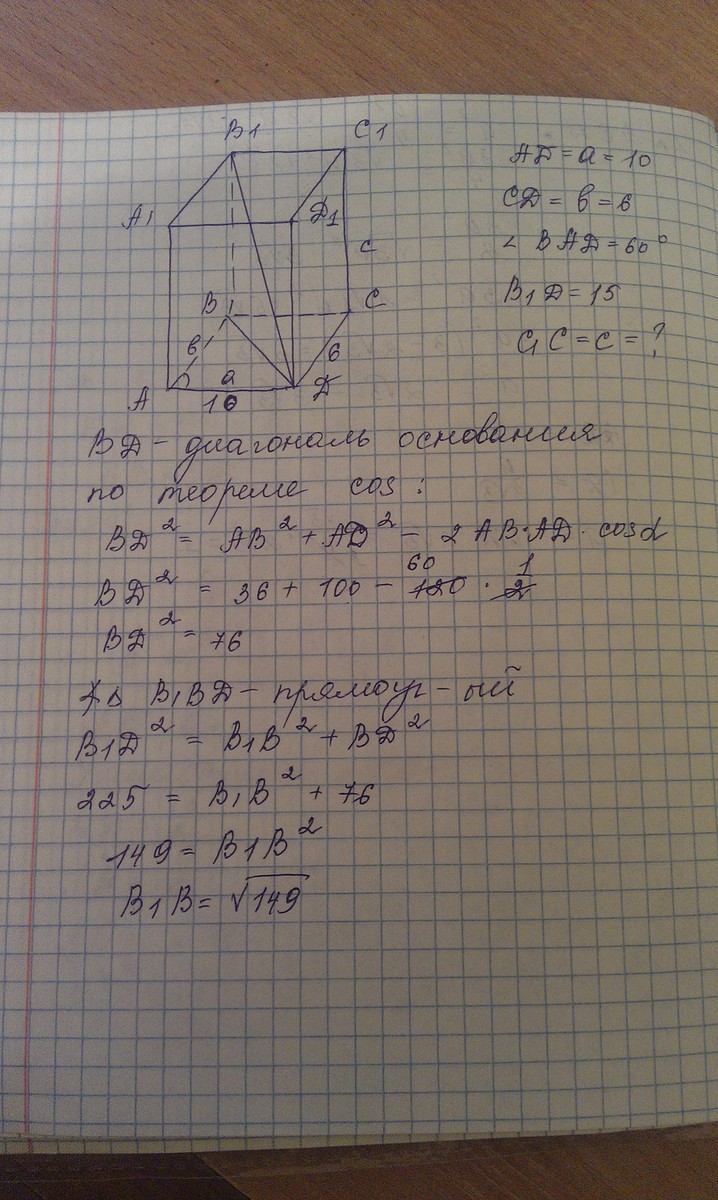 B1 C1
A1 D1
c
B C
в
a 6
A 10 D
AD = a = 10
CD = в = 6
∠ BAD = 60°
B1D = 15
C1C = c = ?
BD - диагональ основания
по теореме cos:
BD² = AB² + AD² - 2AB·AD·cosα
60 1
BD² = 36 + 100 - 120 · 2
BD² = 76
Δ B1BD - прямоуг-ый
B1D² = B1B² + BD²
225 = B1B² + 76
149 = B1B²
B1B = √149